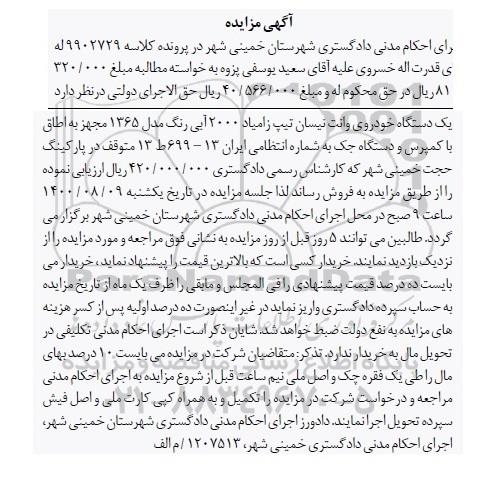 آگهی مزایده
رای احکام مدنی دادگستری شهرستان خمینی شهر در پرونده کلاسه ۹۹۰۲۷۲۹ له
ی قدرت اله خسروی علیه آقای سعید یوسفی پزوه به خواسته مطالبه مبلغ ۳۲۰/۰۰۰
۸۱ ریال در حق محکوم له و مبلغ ۴۰/۵۶۶/۰۰۰ ریال حق الاجرای دولتی درنظر دارد
یک دستگاه خودروی وانت نیسان تیپ زامیاد ۲۰۰۰ آبی رنگ مدل ۱۳۶۵ مجهز به اطاق
با کمپرس و دستگاه جک به شماره انتظامی ایران ۱۳ – ۶۹۹ط ۱۳ متوقف در پارکینگ
حجت خمینی شهر که کارشناس رسمی دادگستری ۴۲۰/۰۰۰/۰۰۰ ریال ارزیابی نموده
را از طریق مزایده به فروش رساند لذا جلسه مزایده در تاریخ یکشنبه ۱۴۰۰/۰۸/۰۹
ساعت ۹ صبح در محل اجرای احکام مدنی دادگستری شهرستان خمینی شهر برگزار می
گردد. طالبین می توانند ۵ روز قبل از روز مزایده به نشانی فوق مراجعه و مورد مزایده را از
نزدیک بازدید نمایند. خریدار کسی است که بالاترین قیمت را پیشنهاد نماید، خریدار می
بایست ده درصد قیمت پیشنهادی را فی المجلس و مابقی را ظرف یک ماه از تاریخ مزایده
به حساب سپرده دادگستری واریز نماید در غیر اینصورت ده درصد اولیه پس از کسر هزینه
های مزایده به نفع دولت ضبط خواهد شد. شایان ذکر است اجرای احکام مدنی تکلیفی در
تحویل مال به خریدار ندارد. تذکر: متقاضیان شرکت در مزایده می بایست ۱۰ درصد بهای
مال را طی یک فقره چک و اصل ملی نیم ساعت قبل از شروع مزایده به اجرای احکام مدنی
مراجعه و درخواست شرکت در مزایده را تکمیل و به همراه کپی کارت ملی و اصل فیش
سپرده تحویل اجرا نمایند. دادورز اجرای احکام مدنی دادگستری شهرستان خمینی شهر،
اجرای احکام مدنی دادگستری خمینی شهر، ۱۲۰۷۵۱۳ / م الف
ParsNamadData
۰۲۱-۸۸۳۴۹۶۷۰-۵